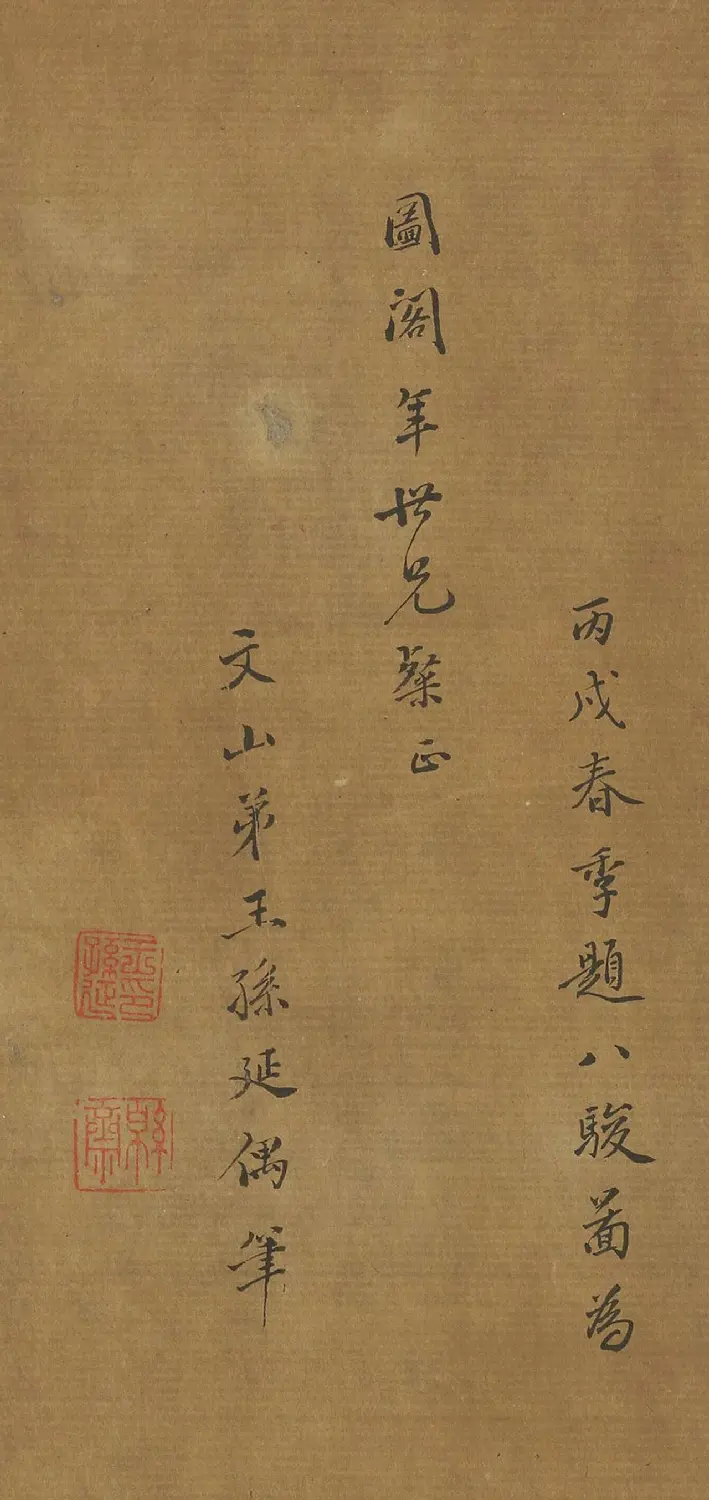 丙戌春季題八駿圖為
圖閣年世兄粲正
文山弟王孫延偶筆